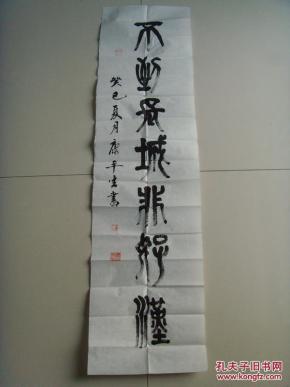 不到長城非好漢
癸巳夏月康平生書
孔夫子旧书网